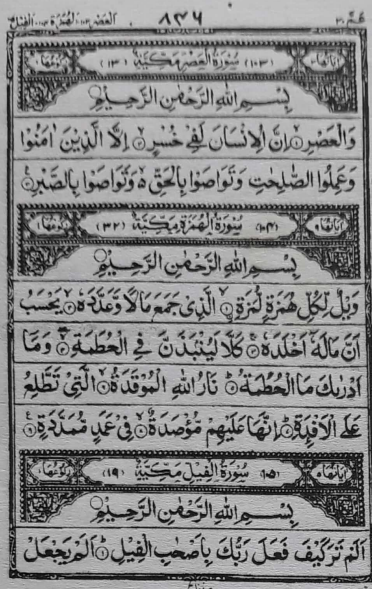 العصر ١٠٣ الهمزة ١٠٤ الفيل ٨٤٦ عم ٣٠
اياتها ٣ (١٠٣) سُوْرَةُ الْعَصْرِ مَكِّيَّةٌ (١٣) ركوعها ١
بِسْمِ اللهِ الرَّحْمٰنِ الرَّحِيْمِ
وَالْعَصْرِۙ اِنَّ الْاِنْسَانَ لَفِيْ خُسْرٍۙ اِلَّا الَّذِيْنَ اٰمَنُوْا
وَعَمِلُوا الصّٰلِحٰتِ وَتَوَاصَوْا بِالْحَقِّ۬ۙ وَتَوَاصَوْا بِالصَّبْرِ
اياتها ٩ (١٠٤) سُوْرَةُ الْهُمَزَةِ مَكِّيَّةٌ (٣٢) ركوعها ١
بِسْمِ اللهِ الرَّحْمٰنِ الرَّحِيْمِ
وَيْلٌ لِّكُلِّ هُمَزَةٍ لُّمَزَةِۙ الَّذِيْ جَمَعَ مَالًا وَّعَدَّدَهٗۙ يَحْسَبُ
اَنَّ مَالَهٗٓ اَخْلَدَهٗۚ كَلَّا لَيُنْۢبَذَنَّ فِي الْحُطَمَةِۖ وَمَآ
اَدْرٰىكَ مَا الْحُطَمَةُؕ نَارُ اللهِ الْمُوْقَدَةُۙ الَّتِيْ تَطَّلِعُ
عَلَى الْاَفْـِٕدَةِؕ اِنَّهَا عَلَيْهِمْ مُّؤْصَدَةٌۙ فِيْ عَمَدٍ مُّمَدَّدَةٍ
اياتها ٥ (١٠٥) سُوْرَةُ الْفِيْلِ مَكِّيَّةٌ (١٩) ركوعها ١
بِسْمِ اللهِ الرَّحْمٰنِ الرَّحِيْمِ
اَلَمْ تَرَ كَيْفَ فَعَلَ رَبُّكَ بِاَصْحٰبِ الْفِيْلِؕ اَلَمْ يَجْعَلْ